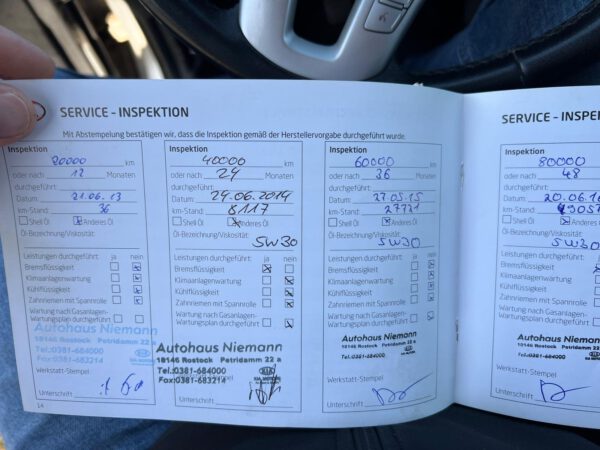 SERVICE - INSPEKTION
Mit Abstempelung bestätigen wir, dass die Inspektion gemäß der Herstellervorgabe durchgeführt wurde.
Inspektion
20000 km
oder nach 12 Monaten
durchgeführt:
Datum: 21.06.13
km-Stand: 36
Shell Öl Anderes Öl
Öl-Bezeichnung/Viskosität:
Leistungen durchgeführt: ja nein
Bremsflüssigkeit
Klimaanlagenwartung
Kühlflüssigkeit
Zahnriemen mit Spannrolle
Wartung nach Gasanlagen-
Wartungsplan durchgeführt
Autohaus Niemann
18146 Rostock Petridamm 22 a
Tel.:0381-684000
Fax:0381-683214
Werkstatt-Stempel
Unterschrift
14
Inspektion
40000 km
oder nach 24 Monaten
durchgeführt:
Datum: 24.06.2014
km-Stand: 8117
Shell Öl Anderes Öl
Öl-Bezeichnung/Viskosität:
5W30
Leistungen durchgeführt: ja nein
Bremsflüssigkeit
Klimaanlagenwartung
Kühlflüssigkeit
Zahnriemen mit Spannrolle
Wartung nach Gasanlagen-
Wartungsplan durchgeführt
Autohaus Niemann
18146 Rostock Petridamm 22 a
Tel.:0381-684000
Fax:0381-683214
Unterschrift
Inspektion
60000 km
oder nach 36 Monaten
durchgeführt:
Datum: 27.05.15
km-Stand: 27721
Shell Öl Anderes Öl
Öl-Bezeichnung/Viskosität:
5W30
Leistungen durchgeführt: ja nein
Bremsflüssigkeit
Klimaanlagenwartung
Kühlflüssigkeit
Zahnriemen mit Spannrolle
Wartung nach Gasanlagen-
Wartungsplan durchgeführt
Autohaus Niemann
18146 Rostock Petridamm 22 a
Tel.:0381-684000
Werkstatt-Stempel
Unterschrift
SERVICE - INSPE
Inspektion
80000
oder nach 48
durchgeführt:
Datum: 20.06.16
km-Stand:
Shell Öl Ander
Öl-Bezeichnung/Viskosit
5W30
Leistungen durchgeführt
Bremsflüssigkeit
Klimaanlagenwartung
Kühlflüssigkeit
Zahnriemen mit Spannro
Wartung nach Gasanlage
Wartungsplan durchgefüh
Autohaus Nie
18146 Rostock Pe
Tel.:0381-684000
Werkstatt-Stempel
Unterschrift